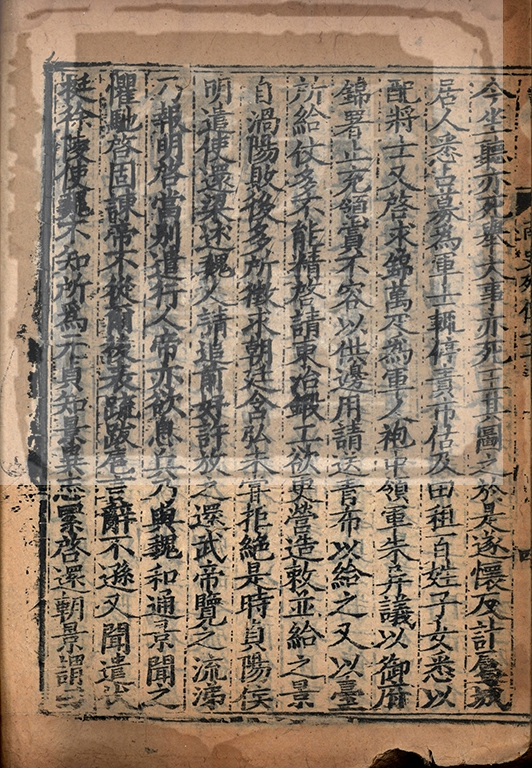 今坐聽亦死舉大事亦死王其圖之於是遂懷反計屬城
居人悉占募為軍士輒停責市估及田租百姓子女悉以
配將士又啓求錦萬疋為軍人袍中領軍朱异議以御府
錦署止充頒賞不容以供邊用請送青布以給之又以臺
所給仗多不能精啓請東冶鍛工欲更營造敕並給之景
自渦陽敗後多所徵求朝廷含弘未嘗拒絶是時貞陽侯
明遣使還梁述魏人請追前好許放之還武帝覽之流涕
乃報明啓當别遣行人帝亦欲息兵乃與魏和通景聞之
懼馳啓固諫帝不從爾後表疏跋扈言辭不遜又聞遣
使魏不知所為元貞知景異志累啓還朝景謂